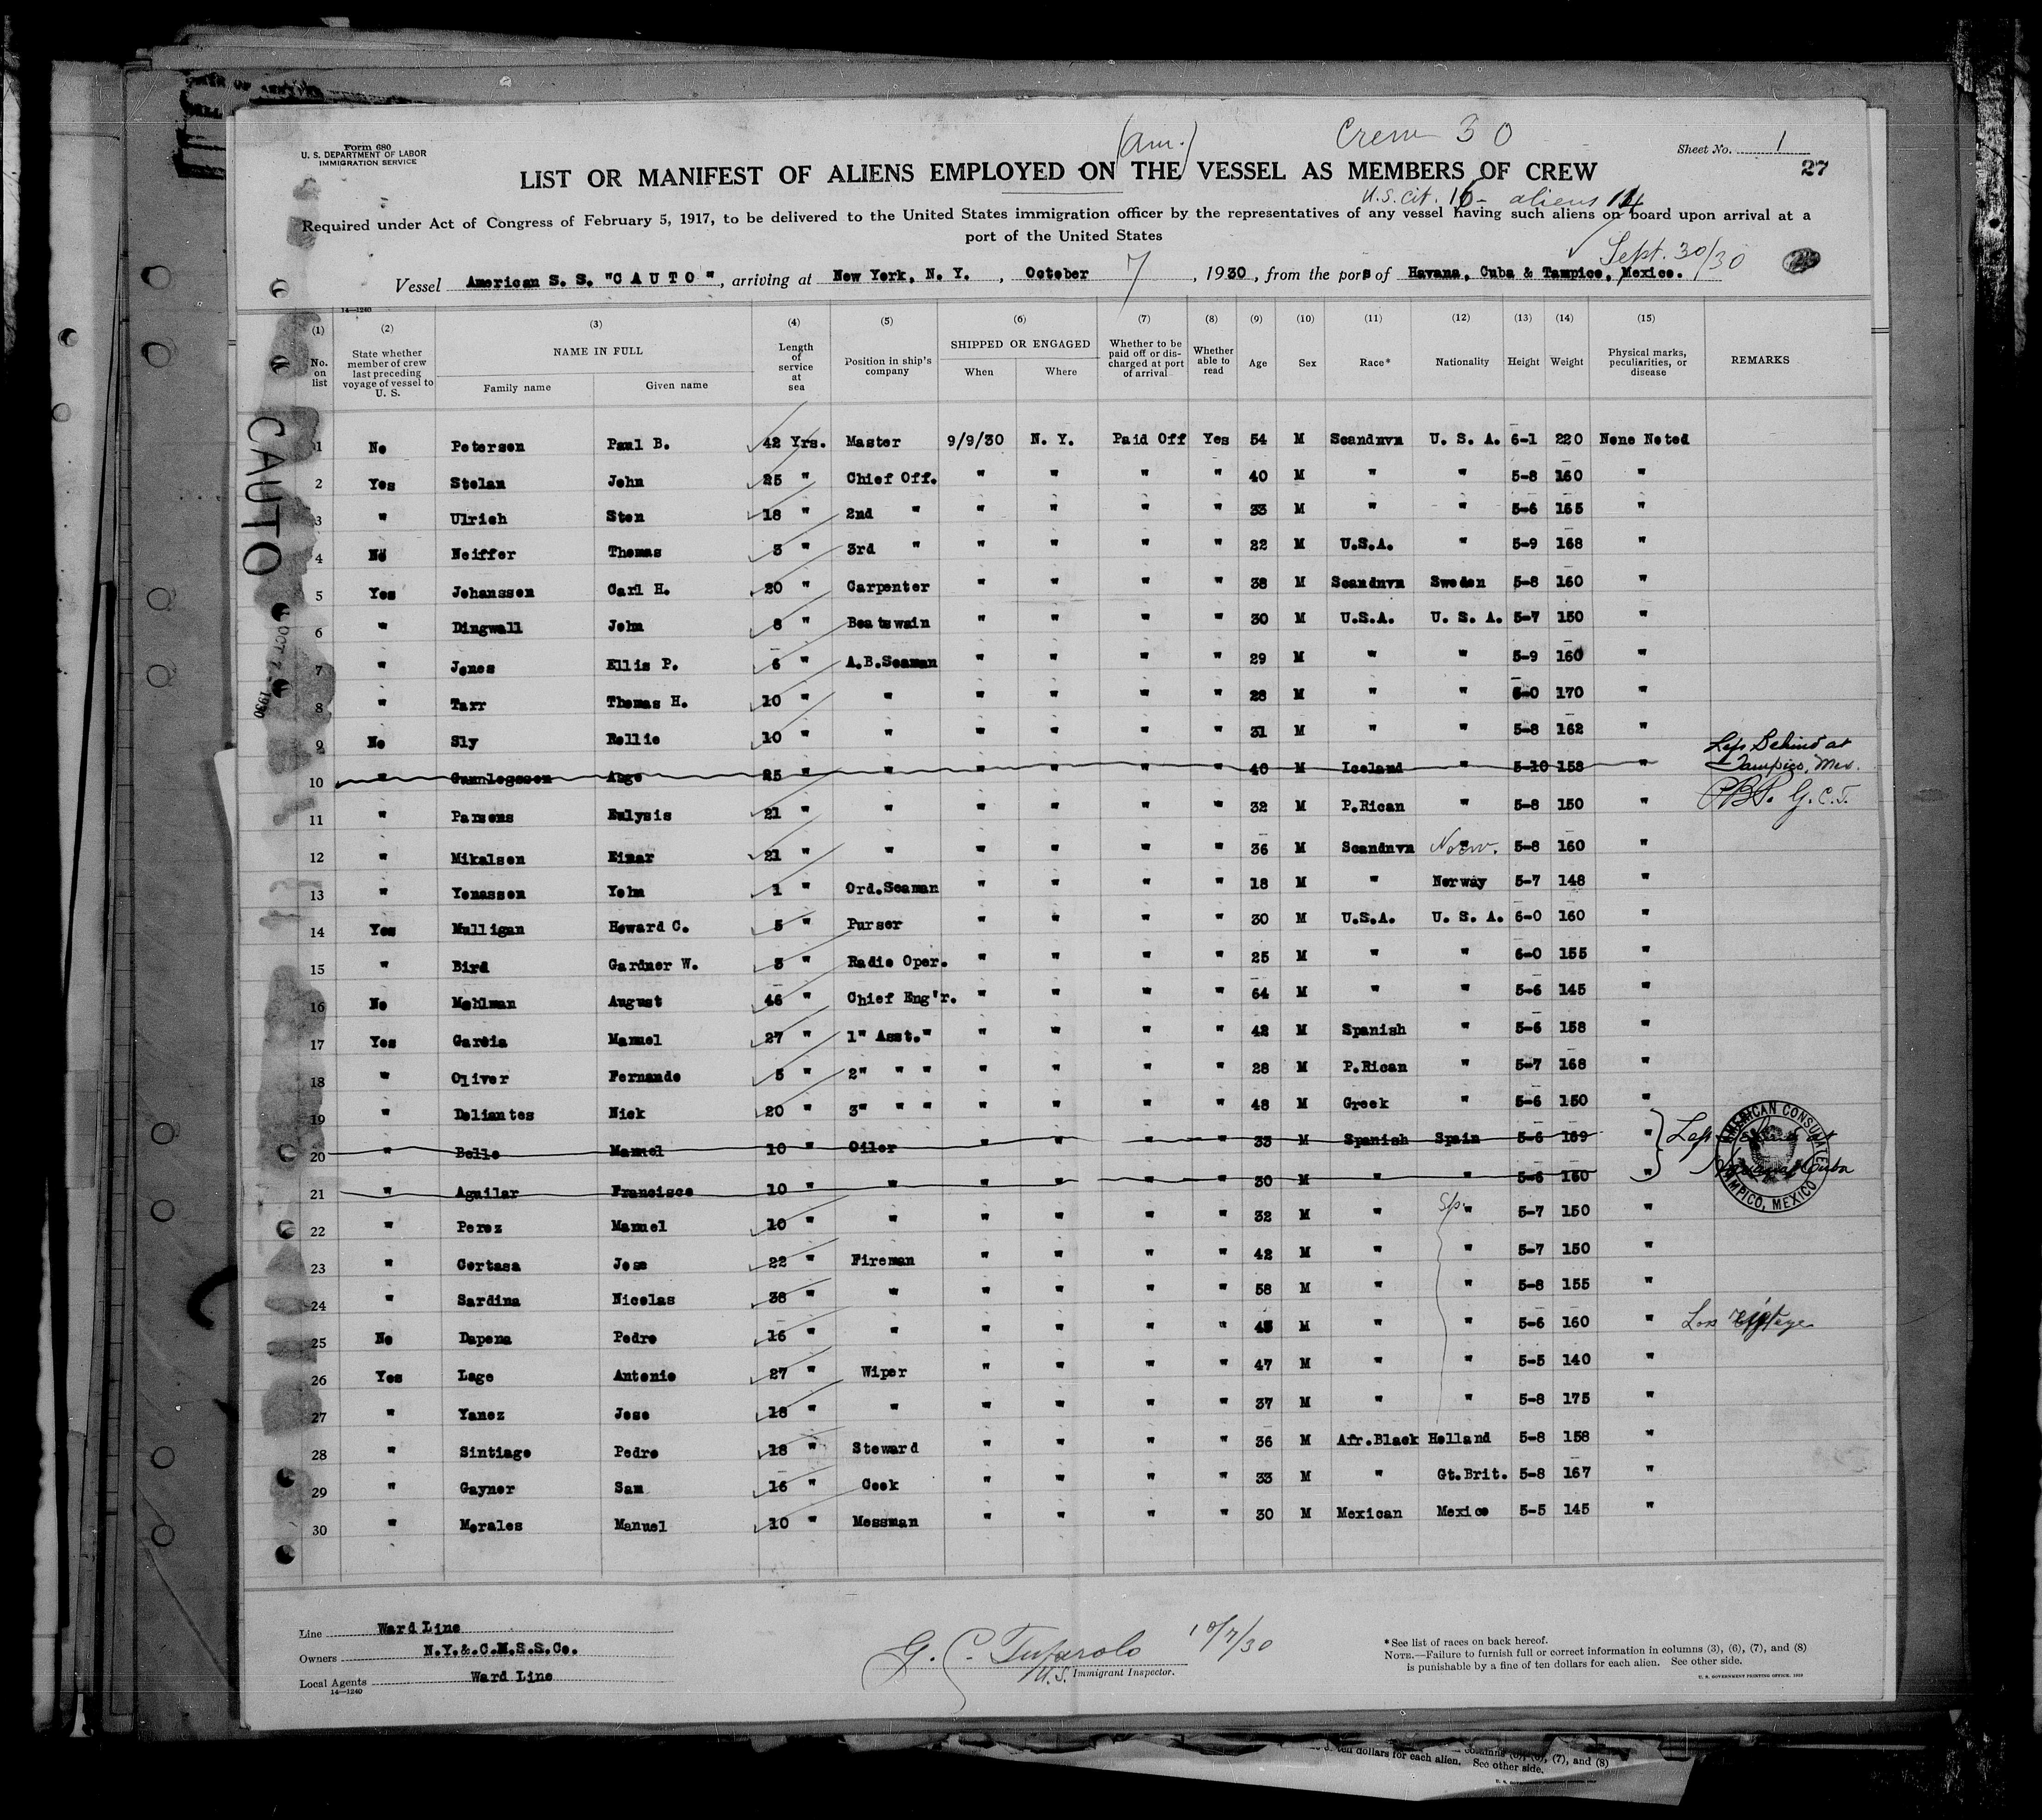 Form 680
U. S. DEPARTMENT OF LABOR
IMMIGRATION SERVICE
(Am.)
Crew 30
Sheet No. 1
27
LIST OR MANIFEST OF ALIENS EMPLOYED ON THE VESSEL AS MEMBERS OF CREW
U.S. Cit. 16 - aliens 14
Required under Act of Congress of February 5, 1917, to be delivered to the United States immigration officer by the representatives of any vessel having such aliens on board upon arrival at a
port of the United States
Sept. 30/30
Vessel American S. S. "C A U T O", arriving at New York, N. Y., October 7, 1930, from the ports of Havana, Cuba & Tampico, Mexico.
14—1240
(1) (2) (3) (4) (5) (6) (7) (8) (9) (10) (11) (12) (13) (14) (15)
No. on list State whether member of crew last preceding voyage of vessel to U. S. NAME IN FULL Family name Given name Length of service at sea Position in ship's company SHIPPED OR ENGAGED When Where Whether to be paid off or discharged at port of arrival Whether able to read Age Sex Race* Nationality Height Weight Physical marks, peculiarities, or disease REMARKS
CAUTO
OCT 7 - 1930
1 No Petersen Paul B. 42 Yrs. Master 9/9/30 N. Y. Paid Off Yes 54 M Scandnvn U. S. A. 6-1 220 None Noted
2 Yes Stolan John 25 " Chief Off. " " " " 40 M " " 5-8 160 "
3 " Ulrich Sten 18 " 2nd " " " " " 33 M " " 5-6 165 "
4 No Neiffer Thomas 3 " 3rd " " " " " 22 M U.S.A. " 5-9 168 "
5 Yes Johanssen Carl H. 20 " Carpenter " " " " 38 M Scandnvn Sweden 5-8 160 "
6 " Dingwall John 8 " Boatswain " " " " 30 M U.S.A. U. S. A. 5-7 150 "
7 " Jones Ellis P. 6 " A.B.Seaman " " " " 29 M " " 5-9 160 "
8 " Tarr Thomas H. 10 " " " " " " 28 M " " 6-0 170 "
9 No Sly Rollie 10 " " " " " " 31 M " " 5-8 162 "
10 " Gunnlogssen Aage 25 " " " " " " 40 M Iceland " 5-10 158 " Left Behind at Tampico, Mex. PBP. G.C.T.
11 " Parsons Eulysis 21 " " " " " " 32 M P.Rican " 5-8 150 "
12 " Mikalsen Einar 21 " " " " " " 36 M Scandnvn Norw. 5-8 160 "
13 " Yonassen Yohn 1 " Ord.Seaman " " " " 18 M " Norway 5-7 148 "
14 Yes Mulligan Howard C. 5 " Purser " " " " 30 M U.S.A. U. S. A. 6-0 160 "
15 " Bird Gardner W. 3 " Radio Oper. " " " " 25 M " " 6-0 155 "
16 No Mehlman August 46 " Chief Eng'r. " " " " 64 M " " 5-6 145 "
17 Yes Garcia Manuel 27 " 1" Asst." " " " " 42 M Spanish " 5-6 158 "
18 " Oliver Fernando 5 " 2" " " " " " " 28 M P.Rican " 5-7 168 "
19 " Deliantes Nick 20 " 3" " " " " " " 48 M Greek " 5-6 150 "
20 " Bello Manuel 10 " Oiler " " " " 33 M Spanish Spain 5-6 159 " Left
21 " Aguilar Francisco 10 " " " " " " 30 M " " 5-6 150 " Havana, Cuba
AMERICAN CONSULATE TAMPICO, MEXICO
22 " Perez Manuel 10 " " " " " " 32 M " Sp. " 5-7 150 "
23 " Cortasa Jose 22 " Fireman " " " " 42 M " " 5-7 150 "
24 " Sardina Nicolas 38 " " " " " " 58 M " " 5-8 155 "
25 No Dapena Pedro 16 " " " " " " 45 M " " 5-6 160 "
26 Yes Lage Antonio 27 " Wiper " " " " 47 M " " 5-5 140 "
27 " Yanez Jose 18 " " " " " " 37 M " " 5-8 175 "
28 " Sintiago Pedro 18 " Steward " " " " 36 M Afr.Black Holland 5-8 158 "
29 " Gayner Sam 16 " Cook " " " " 33 M " Gt.Brit. 5-8 167 "
30 " Morales Manuel 10 " Messman " " " " 30 M Mexican Mexico 5-5 145 "
Line Ward Line
Owners N.Y.&.C.M.S.S.Co.
Local Agents Ward Line
14—1240
G. C. Tufarolo 10/7/30
U.S. Immigrant Inspector.
*See list of races on back hereof.
NOTE.—Failure to furnish full or correct information in columns (3), (6), (7), and (8)
is punishable by a fine of ten dollars for each alien. See other side.
ten dollars for each alien. See other side.
(7), and (8)